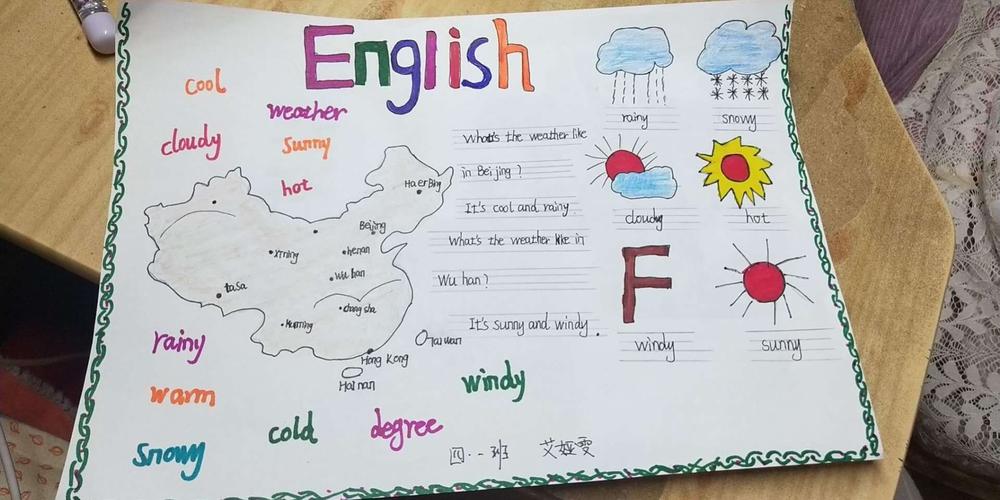 English
cool
weather
cloudy
sunny
hot
What's the weather like
in Beijing?
It's cool and rainy.
What's the weather like in
Wu han?
It's sunny and windy.
rainy
snowy
cloudy
hot
F
windy
sunny
Ha er Bing
Beijing
xi'ning
henan
Wu han
Lasa
chang sha
kunming
Hong Kong
Hai nan
Tai wan
rainy
warm
snowy
cold
degree
windy
四·一班